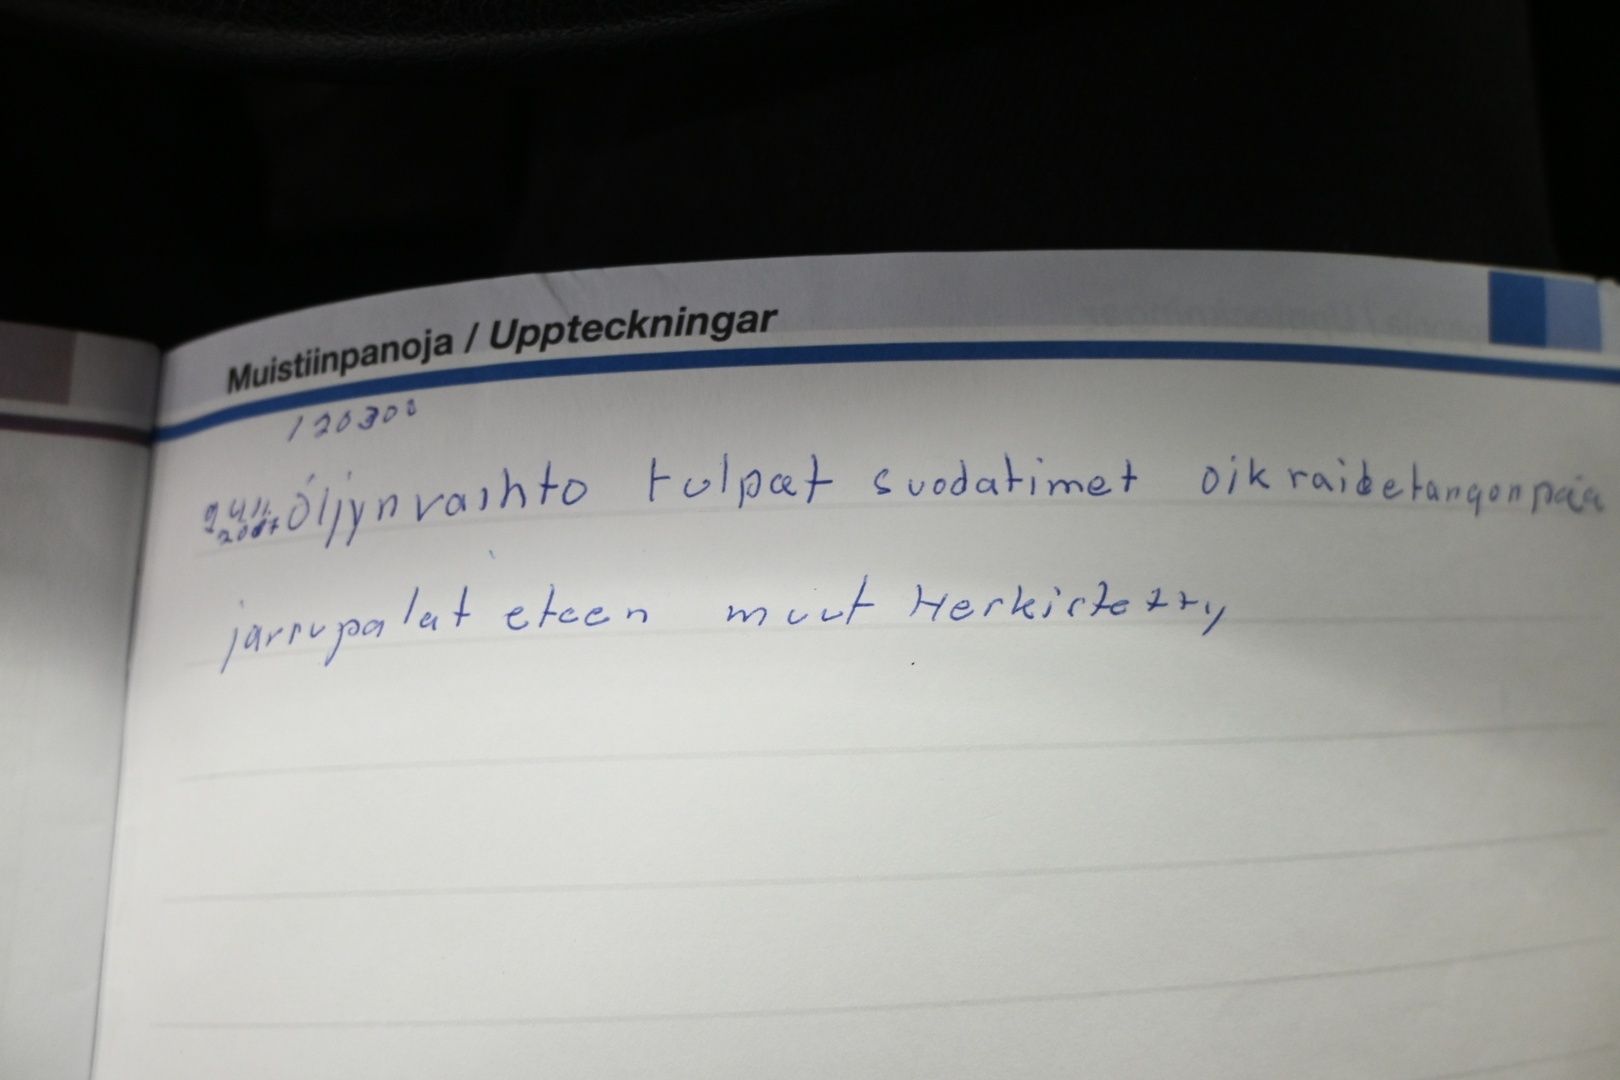 Muistiinpanoja / Uppteckningar
120300
Öljynvaihto tulpat suodatimet oik raidetangonpää
jarrupalat eteen muut Merkistetty